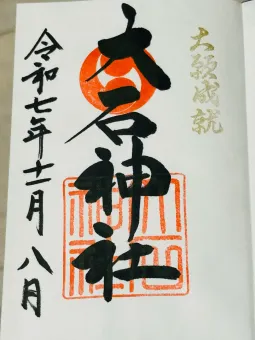 大願成就
大石神社
令和七年十二月八月
大石神社